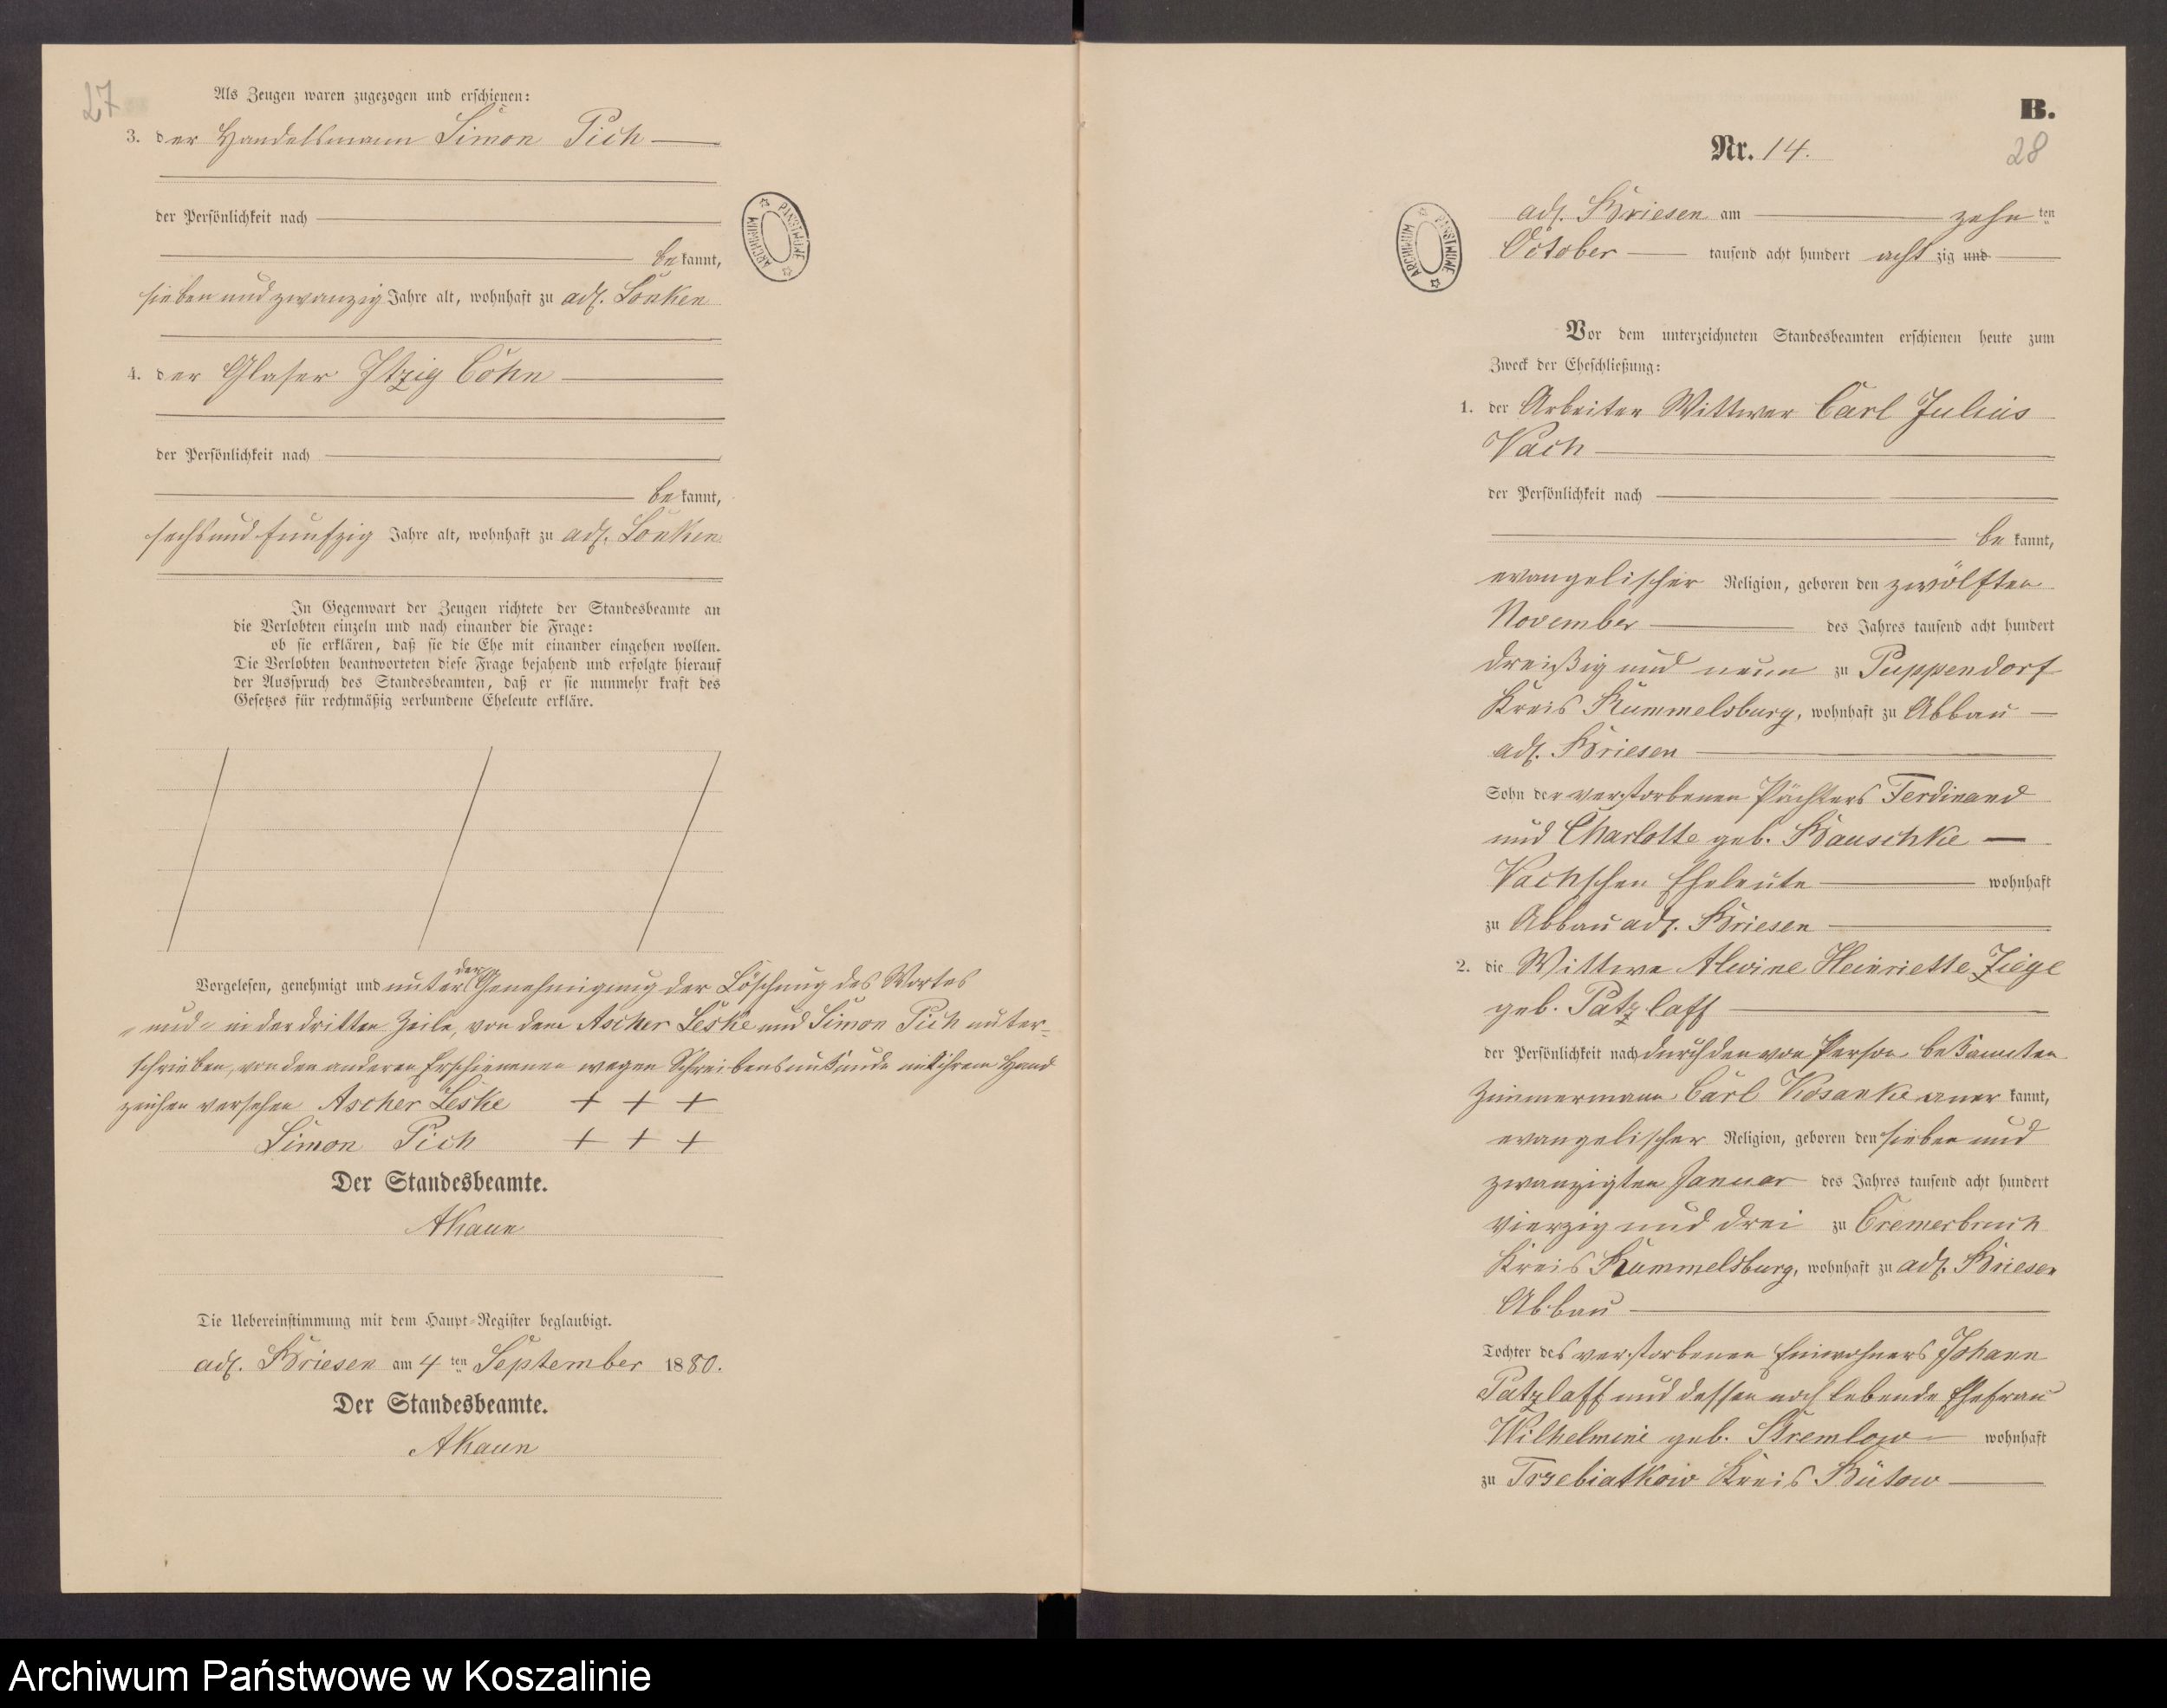 27
Als Zeugen waren zugezogen und erschienen:
3. der Handelsmann Simon Pich
der Persönlichkeit nach
bekannt,
sieben und zwanzig Jahre alt, wohnhaft zu adl. Lonken
4. der Glaser Itzig Cohn
der Persönlichkeit nach
bekannt,
sechs und funfzig Jahre alt, wohnhaft zu adl. Lonken
In Gegenwart der Zeugen richtete der Standesbeamte an
die Verlobten einzeln und nach einander die Frage:
ob sie erklären, daß sie die Ehe mit einander eingehen wollen.
Die Verlobten beantworteten diese Frage bejahend und erfolgte hierauf
der Ausspruch des Standesbeamten, daß er sie nunmehr kraft des
Gesetzes für rechtmäßig verbundene Eheleute erkläre.
Vorgelesen, genehmigt und unter der Genehmigung der Löschung des Wortes
"und" in der dritten Zeile, von dem Ascher Leske und Simon Pich unter-
schrieben, von den anderen Erschienenen wegen Schreibensunkunde mit ihrem Hand
zeichen versehen Ascher Leske + + +
Simon Pich + + +
Der Standesbeamte.
AKaun
Die Uebereinstimmung mit dem Haupt-Register beglaubigt.
adl. Briesen am 4ten September 1880.
Der Standesbeamte.
AKaun
ARCHIWUM PAŃSTWOWE
B.
Nr. 14.
28
ARCHIWUM PAŃSTWOWE
adl. Briesen am zehnten
October tausend acht hundert achtzig und
Vor dem unterzeichneten Standesbeamten erschienen heute zum
Zweck der Eheschließung:
1. der Arbeiter Wittwer Carl Julius
Vach
der Persönlichkeit nach
bekannt,
evangelischer Religion, geboren den zwölften
November des Jahres tausend acht hundert
dreißig und neun zu Puppendorf
Kreis Rummelsburg, wohnhaft zu Abbau
adl. Briesen
Sohn der verstorbenen Pächters Ferdinand
und Charlotte geb. Bauschke
Vachschen Eheleute wohnhaft
zu Abbau adl. Briesen
2. die Wittwe Alwine Heinriette Ziege
geb. Patzlaff
der Persönlichkeit nach durch den von Person bekannten
Zimmermann Carl Kosanke anerkannt,
evangelischer Religion, geboren den sieben und
zwanzigten Januar des Jahres tausend acht hundert
vierzig und drei zu Cremerbruch
Kreis Rummelsburg, wohnhaft zu adl. Briesen
Abbau
Tochter des verstorbenen Einwohners Johann
Patzlaff und dessen noch lebende Ehefrau
Wilhelmine geb. Stremlow wohnhaft
zu Trzebiatkow Kreis Bütow
Archiwum Państwowe w Koszalinie